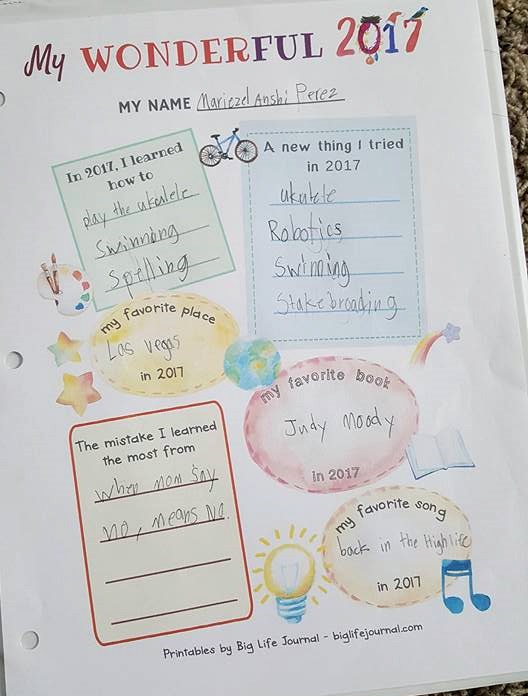 My WONDERFUL 2017
MY NAME Mariezel Anshi Perez
In 2017, I learned
how to
play the ukulele
Swinning
Spelling
A new thing I tried
in 2017
ukulele
Robotics
Swiming
Stakebroading
my favorite place
Las Vegas
in 2017
my favorite book
Judy Moody
in 2017
The mistake I learned
the most from
When mom Say
no, means No.
my favorite song
back in the Highlife
in 2017
Printables by Big Life Journal - biglifejournal.com